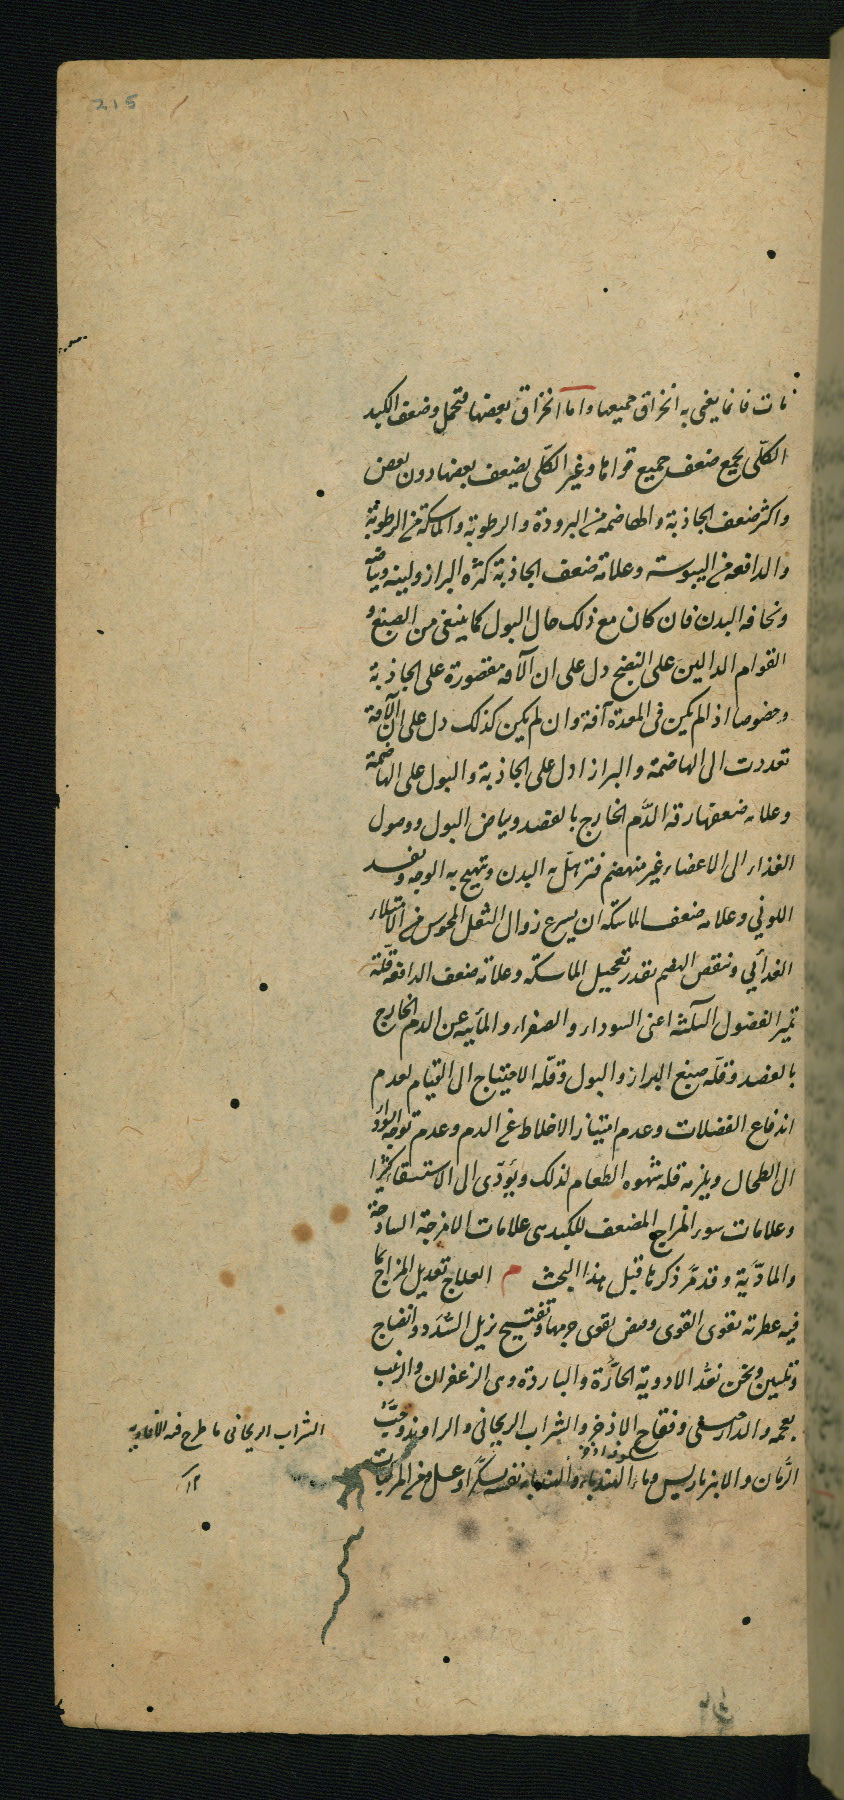 215
مات فانما يعنى به انخراق جميعها واما انخراق بعضها فتحمل وضعف الكبد
الكلّى بجميع ضعف جميع قواها وغير الكلّى بضعف بعضها دون بعض
واكثر ضعف الجاذبة والهاضمة من البرودة والرطوبة والماسكة من الرطوبة
والدافعه من اليبوسته وعلامة ضعف الجاذبة كثرة البراز ولينه وبياضه
ونحافه البدن فان كان مع ذلك حال البول كما ينبغى من الصبغ و
القوام الدالين على النضج دل على ان الآفه مقصورة على الجاذبة
وخصوصا اذا لم يكين فى المعدة آفة وان لم يكين كذلك دل على ان الآفة
تعددت الى الهاضمة والبراز ادل على الجاذبة والبول على الهاضمة
وعلامه ضعفها رقه الدّم الخارج بالفصد وبياض البول ووصول
الغذاء الى الاعضاء غير منهضم فترهل به البدن وتهيج به الوجه ويفسد
اللونى وعلامه ضعف الماسكه ان يسرع زوال الثقل المحوس من الامتلاء
الغدائي وننقص الهضم بقدر تعجيل الماسكه وعلامة ضعف الدافعه قلّة
تميز الفضول الثلثه اعنى السوداء والصفراء والمائيه عن الدم الخارج
بالفصد وقلّه صبغ البراز والبول وقلّه الاحتياج الى القيام لعدم
اندفاع الفضلات وعدم امتياز الاخلاط عن الدم وعدم توجه السوداء
الى الطحال ويلزمه قله شهوه الطعام لذلك ويؤدّى الى الاستسقاء كثيرا
وعلامات سوء المزاج المضعف للكبد هى علامات الامزجة الساذجة
والمادّية وقد مرّ ذكرها قبل هذا البحث م العلاج تعديل المزاج بما
فيه عطرية تقوى القوى وقبض يقوى جرمها وتفتيح يزيل السّدد وانضاج
وتليين ونحن نعدّ الادوية الحارّة والباردة وهى الزعفران والزبيب
بعجمه والدارصينى وفقاح الاذخر والشراب الريحانى والراوند وحبّ
الرّمان والانبرباريس وماء الهندباء والهندباء نفسه بسكر او عسل ومن المركبات
الشراب الريحانى ما طرح فيه الافاويه
١٢